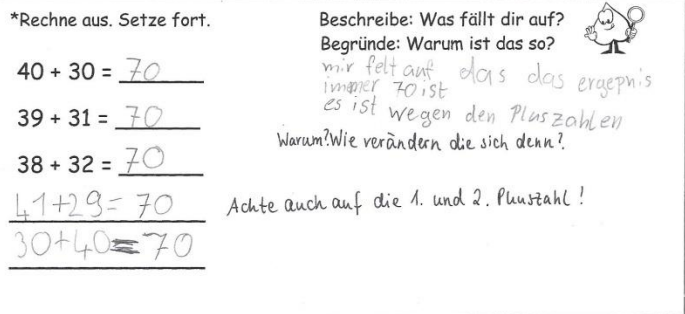 *Rechne aus. Setze fort.
40 + 30 = 70
39 + 31 = 70
38 + 32 = 70
41+29= 70
30+40=70
Beschreibe: Was fällt dir auf?
Begründe: Warum ist das so?
mir felt auf das das ergepnis
immer 70 ist
es ist wegen den Pluszahlen
Warum? Wie verändern die sich denn?
Achte auch auf die 1. und 2. Pluszahl!